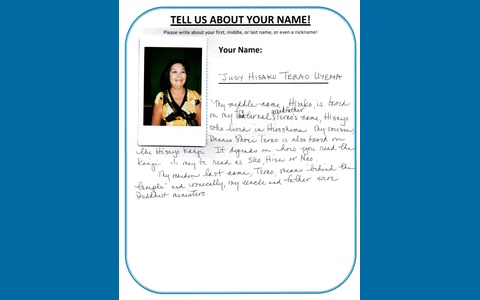 TELL US ABOUT YOUR NAME!
Please write about your first, middle, or last name, or even a nickname!
Your Name:
JUDY HISAKO TERAO UYEMA
My middle name, Hisako, is based
grandfather
on my paternal Terao's name, Hisayo,
who lived in Hiroshima. My cousin,
Dennis Shoei Terao is also based on
the Hisayo Kanji. It depends on how you read the
Kanji it may be read as Sho, Hisa or Nao.
My maiden last name, Terao, means 'behind the
temple' and ironically, my uncle and father were
Buddhist ministers.